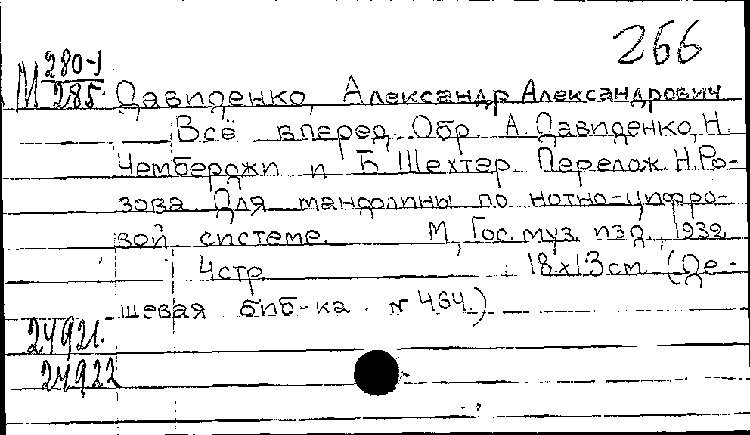 266
М 280-1
285
Давиденко, Александр Александрович
Всё вперед. Обр. А. Давиденко, Н.
Чемберджи и Б. Шехтер. Перелож. Н. Ро-
зова Для мандолины по нотно-цифро-
вой системе. М., Гос. муз. изд., 1932
4 стр 18х13 см. (Де-
шевая биб-ка. № 434.)
24921.
24922